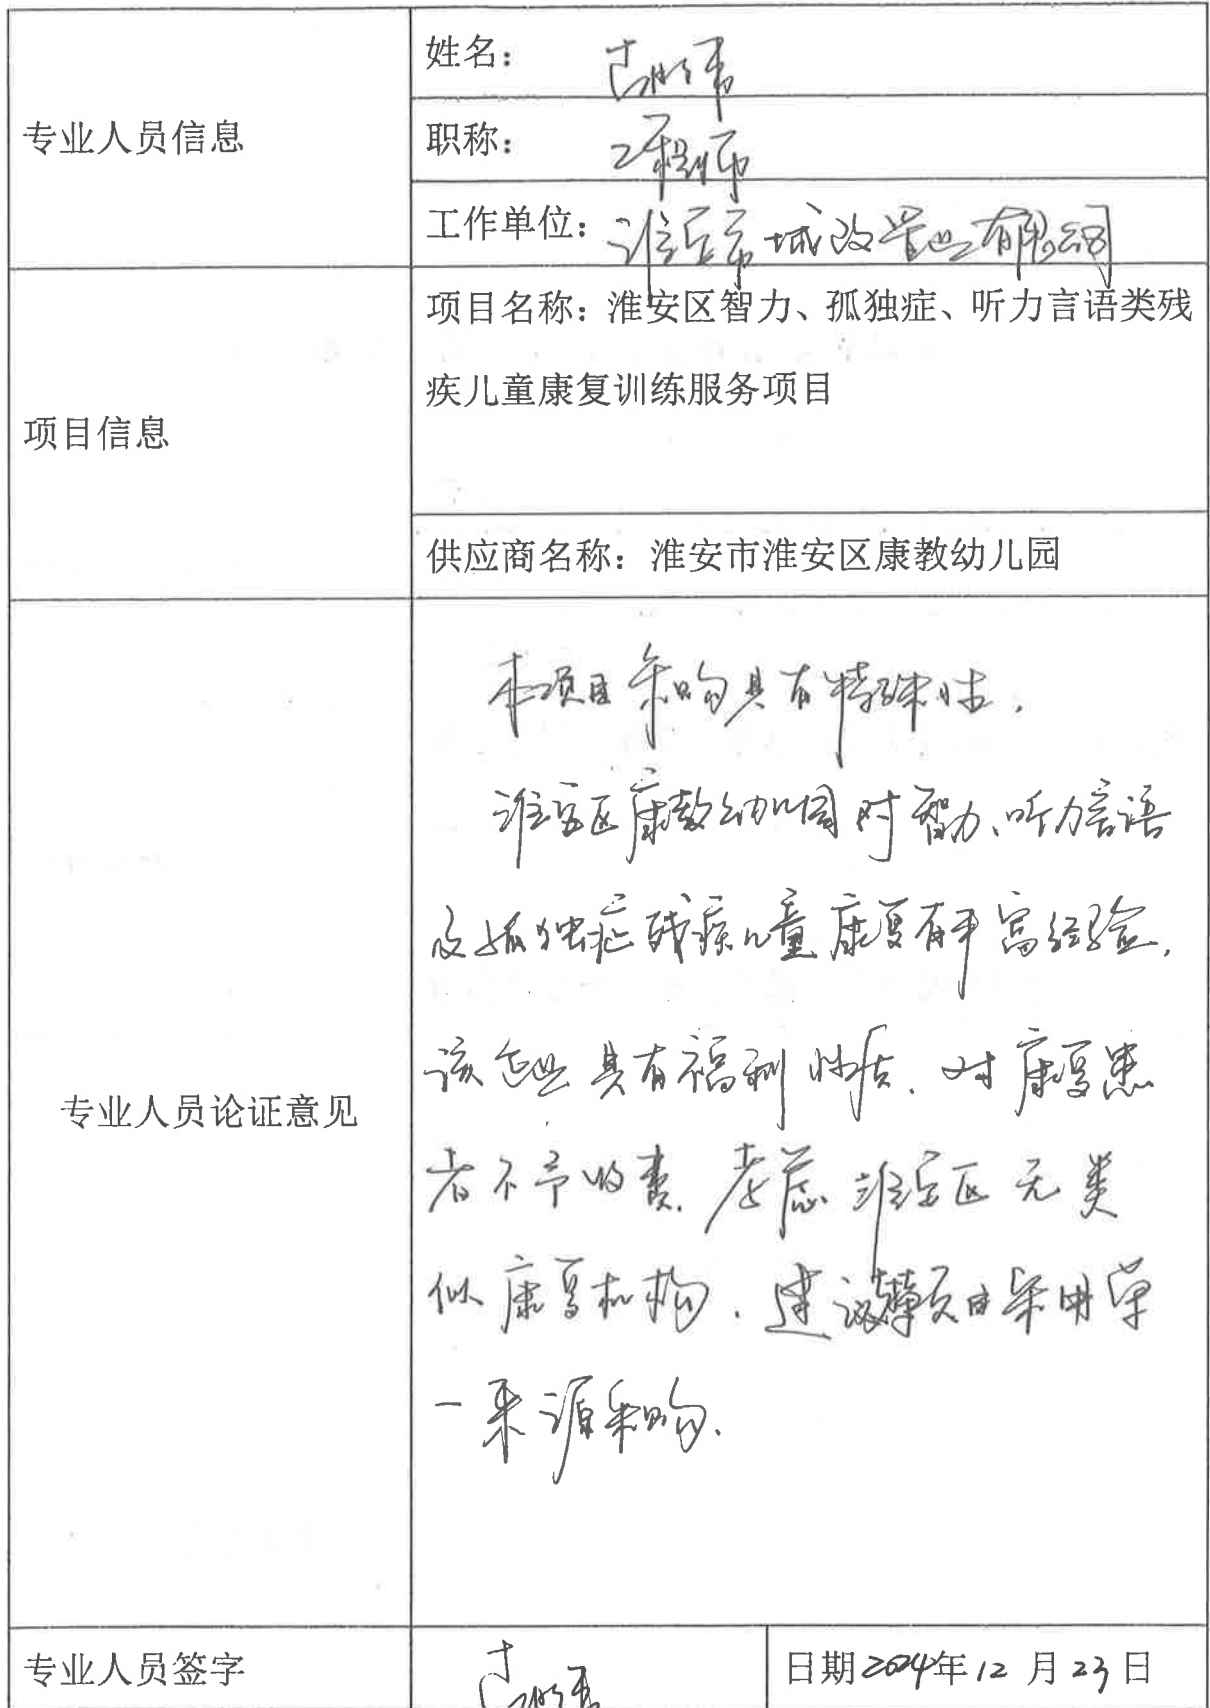 姓名：
专业人员信息
职称：工程师
工作单位：淮安市城改置业有限公司
项目名称：淮安区智力、孤独症、听力言语类残
疾儿童康复训练服务项目
项目信息
供应商名称：淮安市淮安区康教幼儿园
本项目采购具有特殊性，
淮安区康教幼儿园对智力、听力言语
及孤独症残疾儿童康复有丰富经验，
该企业具有福利性质，对康复患
专业人员论证意见
者不予收费，考虑淮安区无类
似康复机构，建议该项目采用单
一来源采购。
专业人员签字
日期2024年12月23日